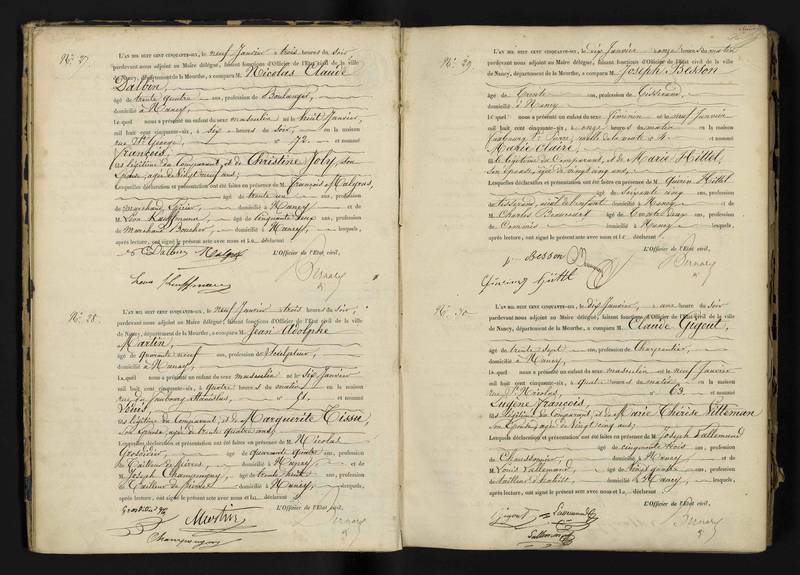 N.º 27
L'AN MIL HUIT CENT CINQUANTE-SIX, le neuf Janvier à trois heures du soir
pardevant nous adjoint au Maire délégué, faisant fonctions d'Officier de l'État civil de la ville
de Nancy, département de la Meurthe, a comparu M. Nicolas Claude
Dalbin,
âgé de trente quatre ans, profession de Boulanger,
domicilié à Nancy,
Lequel nous a présenté un enfant du sexe masculin né le huit Janvier,
mil huit cent cinquante-six, à six heures du soir, en la maison
rue St. George, n° 72. et nommé
François,
fils légitime du Comparant, et de Christine Joly, son
Épouse, âgée de vingt neuf ans;
Lesquelles déclaration et présentation ont été faites en présence de M. François Malgras,
âgé de trente un ans, profession
de marchand Épicier, domicilié à Nancy et de
M. Léon Kauffmann âgé de cinquante deux ans, profession
de Marchand Boucher, domicilié à Nancy, lesquels,
après lecture, ont signé le présent acte avec nous et le déclarant
Dalbin Malgras L'Officier de l'État civil,
Bernard
N.º 28.
L'AN MIL HUIT CENT CINQUANTE-SIX, le neuf Janvier à trois heures du soir,
pardevant nous adjoint au Maire délégué, faisant fonctions d'Officier de l'État civil de la ville
de Nancy, département de la Meurthe, a comparu M. Jean Adolphe
Martin,
âgé de quarante neuf ans, profession de Sculpteur,
domicilié à Nancy,
Lequel nous a présenté un enfant du sexe masculin né le six Janvier
mil huit cent cinquante-six, à quatre heures du matin en la maison
rue du faubourg Stanislas, n° et nommé
fils légitime du Comparant, et de Marguerite Tissu,
son Épouse, âgée de trente quatre ans;
Lesquelles déclaration et présentation ont été faites en présence de M. Nicolas
Grosdidier, âgé de quarante quatre ans, profession
de Tailleur de pierres, domicilié à Nancy, et de
M. Joseph Champougny, âgé de trente huit ans, profession
de Tailleur de pierres domicilié à Nancy, lesquels,
après lecture, ont signé le présent acte avec nous et le déclarant
Grosdidier L'Officier de l'État civil,
Martin Bernard
Champougny
N.º 29.
L'AN MIL HUIT CENT CINQUANTE-SIX, le dix Janvier à onze heures du matin
pardevant nous adjoint au Maire délégué, faisant fonctions d'Officier de l'État civil de la ville
de Nancy, département de la Meurthe, a comparu M. Joseph Besson
âgé de trente ans, profession de Tisserand,
domicilié à Nancy
Lequel nous a présenté un enfant du sexe féminin né le neuf Janvier
mil huit cent cinquante-six, à onze heures du matin en la maison
faubourg St. Pierre, n° 4. et nommé
Marie Claire,
fille légitime du Comparant, et de Marie Hittel,
son Épouse, âgée de vingt cinq ans,
Lesquelles déclaration et présentation ont été faites en présence de M. Quirin Hittel
âgé de soixante cinq ans, profession
de tisserand, domicilié à Nancy et de
M. Charles âgé de trente deux ans, profession
de Commis domicilié à Nancy lesquels,
après lecture, ont signé le présent acte avec nous et le déclarant
L'Officier de l'État civil,
Besson Bernard
N.º 30
L'AN MIL HUIT CENT CINQUANTE-SIX, le dix Janvier, à une heure du soir
pardevant nous adjoint au Maire délégué, faisant fonctions d'Officier de l'État civil de la ville
de Nancy, département de la Meurthe, a comparu M. Claude Gigout,
âgé de trente sept ans, profession de Charpentier,
domicilié à Nancy,
Lequel nous a présenté un enfant du sexe masculin né le neuf Janvier
mil huit cent cinquante-six, à quatre heures du matin en la maison
rue St. Nicolas, n° 63. et nommé
Eugène François,
fils légitime du Comparant, et de Marie Thérèse
son Épouse, âgée de vingt cinq ans;
Lesquelles déclaration et présentation ont été faites en présence de M. Joseph Lallemand
âgé de cinquante trois ans, profession
de domicilié à Nancy et de
M. Louis Lallemand, âgé de vingt quatre ans, profession
de tailleur d'habits, domicilié à Nancy, lesquels,
après lecture, ont signé le présent acte avec nous et le déclarant
L'Officier de l'État civil,
Gigout Lallemand Bernard
Lallemand